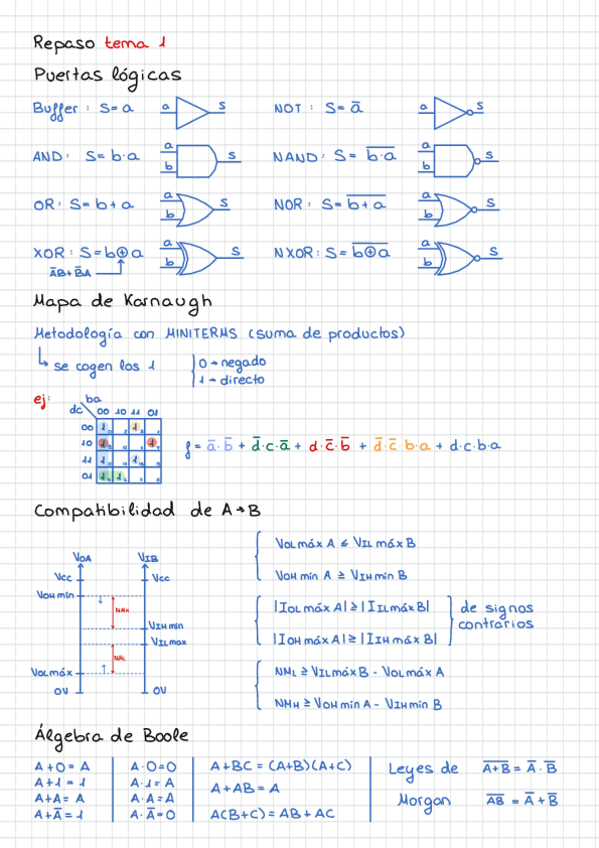 Repaso tema 1
Puertas lógicas
Buffer : S=a
a
S
NOT : S=a̅
a
S
AND: S=b·a
a
b
S
NAND: S= \overline{b·a}
a
b
S
OR: S=b+a
a
b
S
NOR: S=\overline{b+a}
a
b
S
XOR: S=b⊕a
A̅B+B̅A
a
b
S
NXOR: S=\overline{b⊕a}
a
b
S
Mapa de Karnaugh
Metodología con MINITERMS (suma de productos)
se cogen los 1
0→negado
1→directo
ej:
ba
dc
00 10 11 01
00 1 1
10 1 1
11 1 1
01 1 1
f = a̅·b̅ + d̅·c·a̅ + d·c̅·b̅ + d̅·c̅·b·a + d·c·b·a
Compatibilidad de A→B
VOA
VIB
Vcc
Vcc
VOH mín
NMH
VIH mín
VIL max
NML
VOL máx
0V
0V
VOL máx A ≤ VIL máx B
VOH mín A ≥ VIH mín B
|IOL máx A| ≥ |IIL máx B|
|IOH máx A| ≥ |IIH máx B|
de signos
contrarios
NML ≥ VIL máx B - VOL máx A
NMH ≥ VOH mín A - VIH mín B
Álgebra de Boole
A+0=A
A+1=1
A+A=A
A+A̅=1
A·0=0
A·1=A
A·A=A
A·A̅=0
A+BC=(A+B)(A+C)
A+AB=A
A(B+C)=AB+AC
Leyes de
Morgan
\overline{A+B} = A̅·B̅
\overline{AB} = A̅+B̅